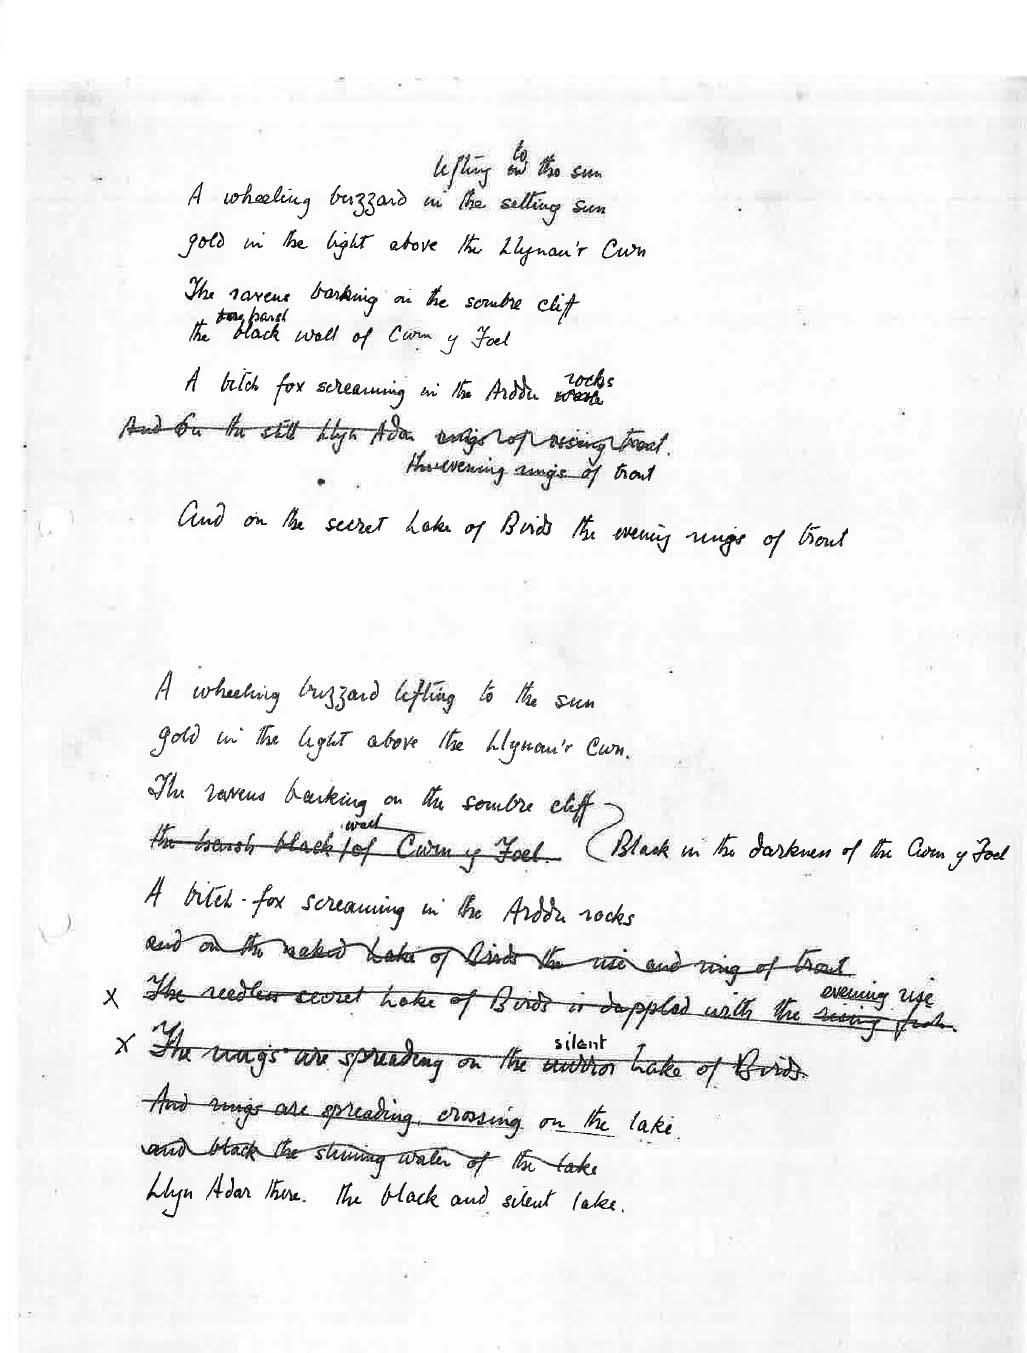 lifting to the sun
A wheeling buzzard in the setting sun
gold in the light above the Llynau'r Cwn
The ravens barking on the sombre cliff
harsh
the black wall of Cwm y Foel
A bitch fox screaming in the Arddu rocks
And on the still Llyn Adar rings of rising trout.
the evening rings of trout
And on the secret Lake of Birds the evening rings of trout
A wheeling buzzard lifting to the sun
gold in the light above the Llynau'r Cwn.
The ravens barking on the sombre cliff
wall
the harsh black / of Cwm y Foel. Black in the darkness of the Cwm y Foel
A bitch-fox screaming in the Arddu rocks
and on the naked Lake of Birds the rise and ring of trout
evening rise
x The reedless secret Lake of Birds is dappled with the rising fish.
silent
x The rings are spreading on the mirror Lake of Birds.
And rings are spreading, crossing on the lake.
and black the shining water of the lake
Llyn Adar there. The black and silent lake.